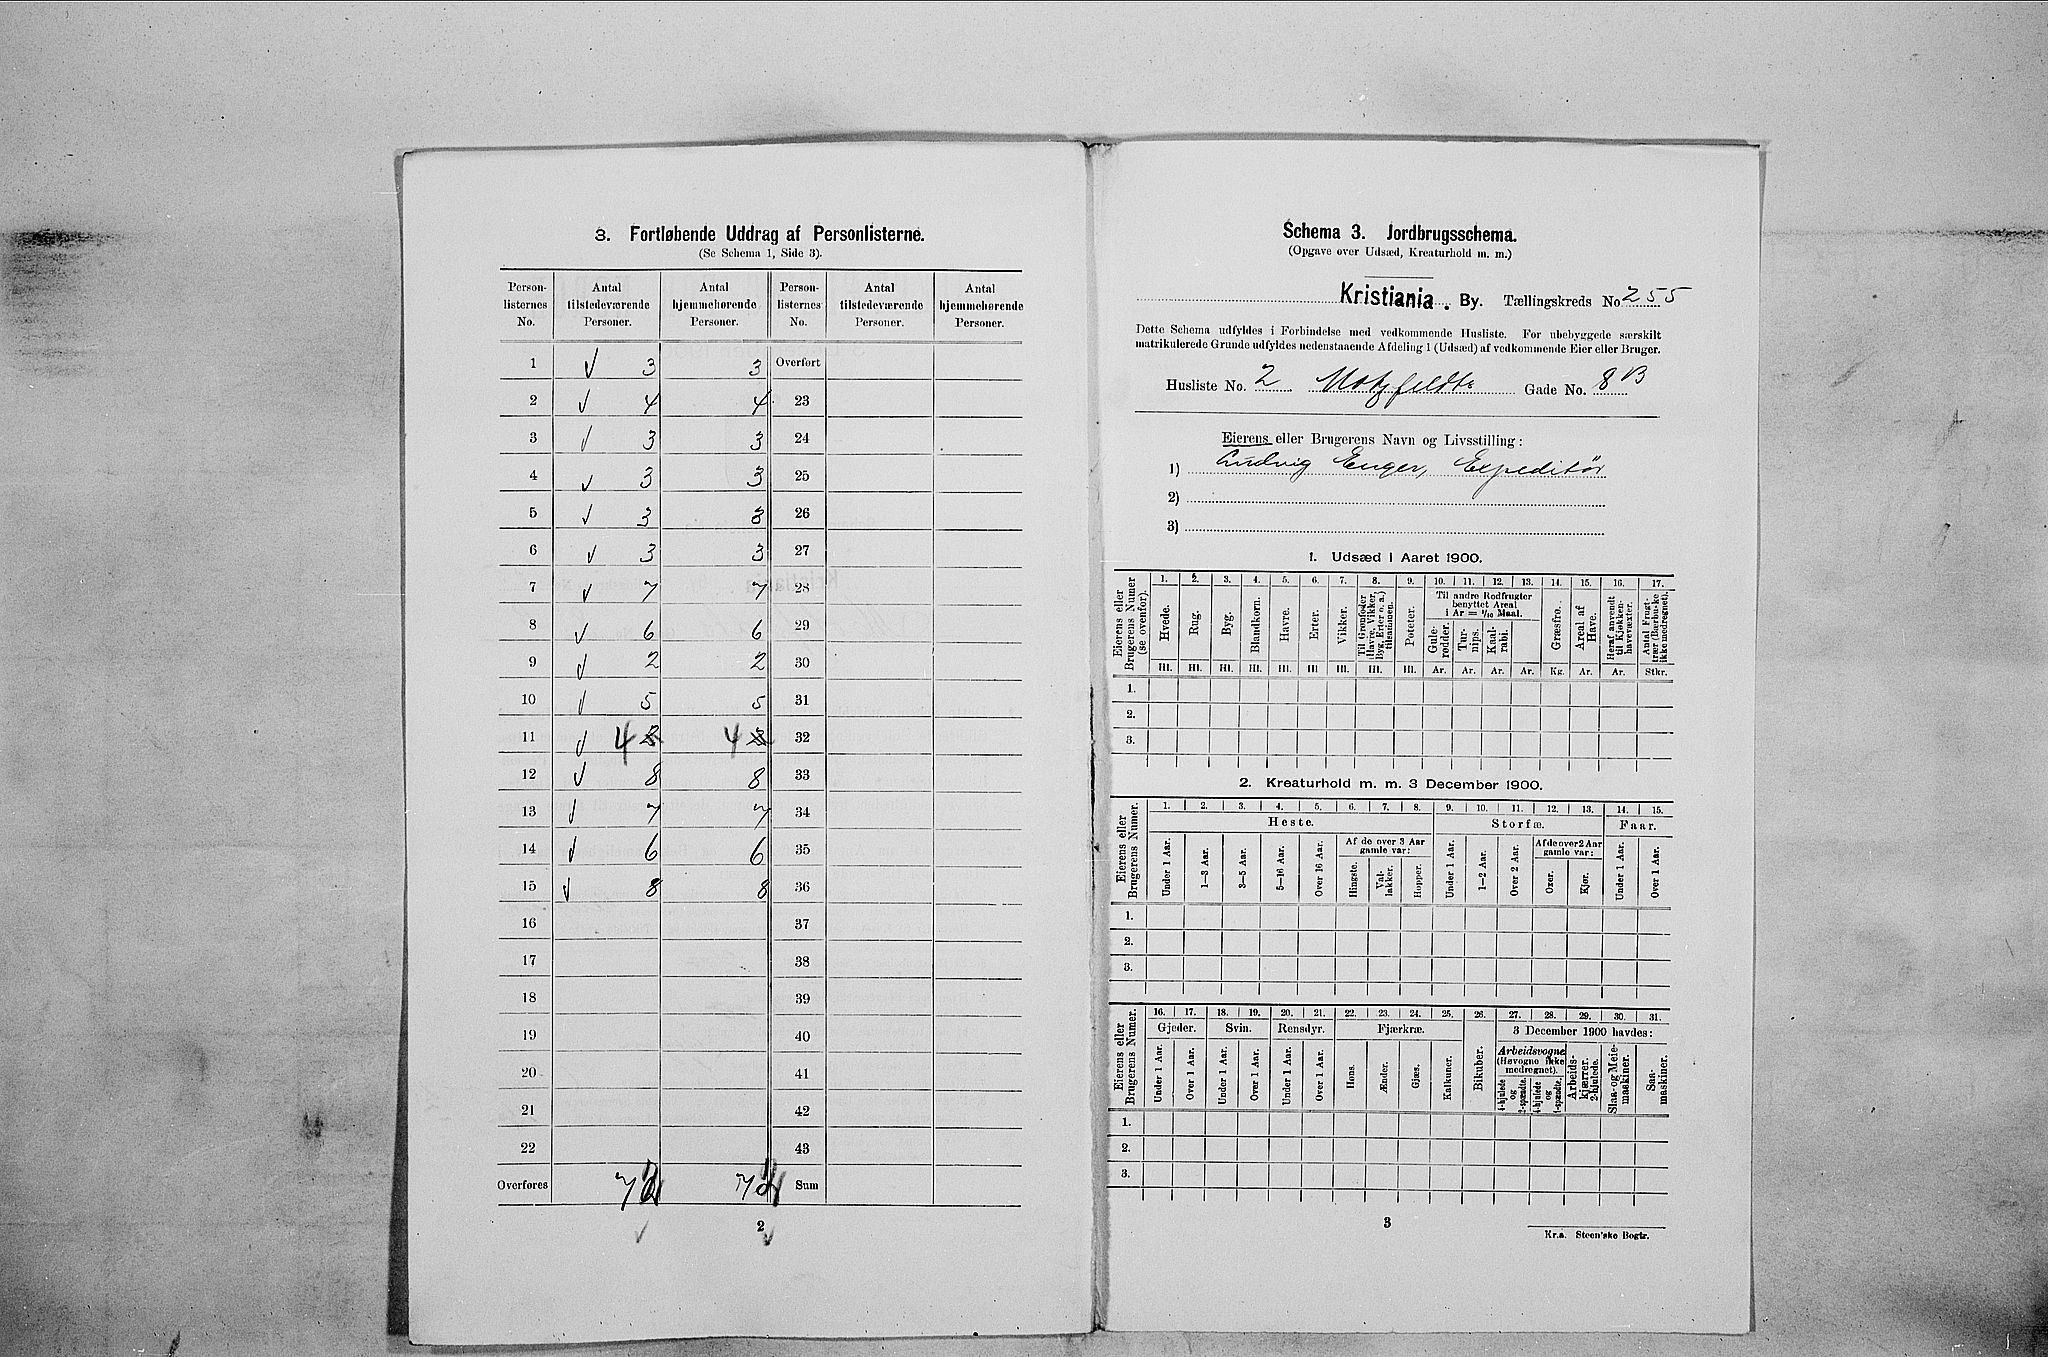 3. Fortløbende Uddrag af Personlisterne.
(Se Schema 1, Side 3).
Person-listernes No. | Antal tilstedeværende Personer. | Antal hjemmehørende Personer. | Person-listernes No. | Antal tilstedeværende Personer. | Antal hjemmehørende Personer.
1 ✓ 3 3 Overført
2 ✓ 4 4 23
3 ✓ 3 3 24
4 ✓ 3 3 25
5 ✓ 3 3 26
6 ✓ 3 3 27
7 ✓ 7 7 28
8 ✓ 6 6 29
9 ✓ 2 2 30
10 ✓ 5 5 31
11 ✓ 4 3 4 3 32
12 ✓ 8 8 33
13 ✓ 7 7 34
14 ✓ 6 6 35
15 ✓ 8 8 36
16 37
17 38
18 39
19 40
20 41
21 42
22 43
Overføres Sum
2
Schema 3. Jordbrugsschema.
(Opgave over Udsæd, Kreaturhold m. m.)
Kristiania. By. Tællingskreds No 255
Dette Schema udfyldes i Forbindelse med vedkommende Husliste. For ubebyggede særskilt
matrikulerede Grunde udfyldes nedenstaaende Afdeling 1 (Udsæd) af vedkommende Eier eller Bruger.
Husliste No. 2 Motzfeldts Gade No. 8 B
Eierens eller Brugerens Navn og Livsstilling:
1) Ludvig Enger, Expeditør
2)
3)
1. Udsæd i Aaret 1900.
Eierens eller Brugerens Numer (se ovenfor).
1. 2. 3. 4. 5. 6. 7. 8. 9. 10. 11. 12. 13. 14. 15. 16. 17.
Hvede. Rug. Byg. Blandkorn. Havre. Erter. Vikker. Til Grønfoder (Havre, Vikker, Byg, Erter o. a.) tilsammen. Poteter.
Til andre Rodfrugter benyttet Areal i Ar = 1/10 Maal.
Gule-rødder. Tur-nips. Kaal-rabi.
Græsfrø. Areal af Have. Heraf anvendt til Kjøkken-havevæxter. Antal Frugt-trær (Bærbuske ikke medregnet).
Hl. Hl. Hl. Hl. Hl. Hl Hl. Hl. Hl. Ar. Ar. Ar. Ar. Kg. Ar. Ar. Stkr.
1.
2.
3.
2. Kreaturhold m. m. 3 December 1900.
Eierens eller Brugerens Numer.
1. 2. 3. 4. 5. 6. 7. 8. 9. 10. 11. 12. 13. 14. 15.
Heste. Storfæ. Faar.
Under 1 Aar. 1—3 Aar. 3—5 Aar. 5—16 Aar. Over 16 Aar.
Af de over 3 Aar gamle var:
Hingste. Val-lakker. Hopper.
Under 1 Aar. 1—2 Aar. Over 2 Aar.
Af de over 2 Aar gamle var:
Oxer. Kjør.
Under 1 Aar. Over 1 Aar.
1.
2.
3.
Eierens eller Brugerens Numer.
16. 17. 18. 19. 20. 21. 22. 23. 24. 25. 26. 27. 28. 29. 30. 31.
Gjeder. Svin. Rensdyr. Fjærkræ. 3 December 1900 havdes:
Under 1 Aar. Over 1 Aar. Under 1 Aar. Over 1 Aar. Under 1 Aar. Over 1 Aar. Høns. Ænder. Gjæs. Kalkuner. Bikuber.
Arbeidsvogne (Høvogne ikke medregnet).
4-hjulede og 2-spændte. 4-hjulede og 1-spændte.
Arbeids-kjærrer, 2-hjulede. Slaa- og Meie-maskiner. Saa-maskiner.
1.
2.
3.
3
Kr.a. Steen'ske Bogtr.